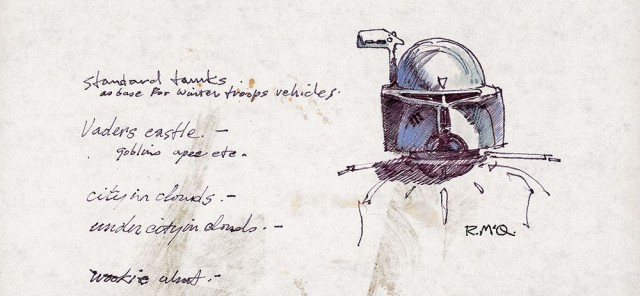 standard tanks.
as base for winter troops vehicles.
Vaders castle. –
goblins apes etc.
city in clouds. –
under city in clouds. –
wookie
R.McQ.